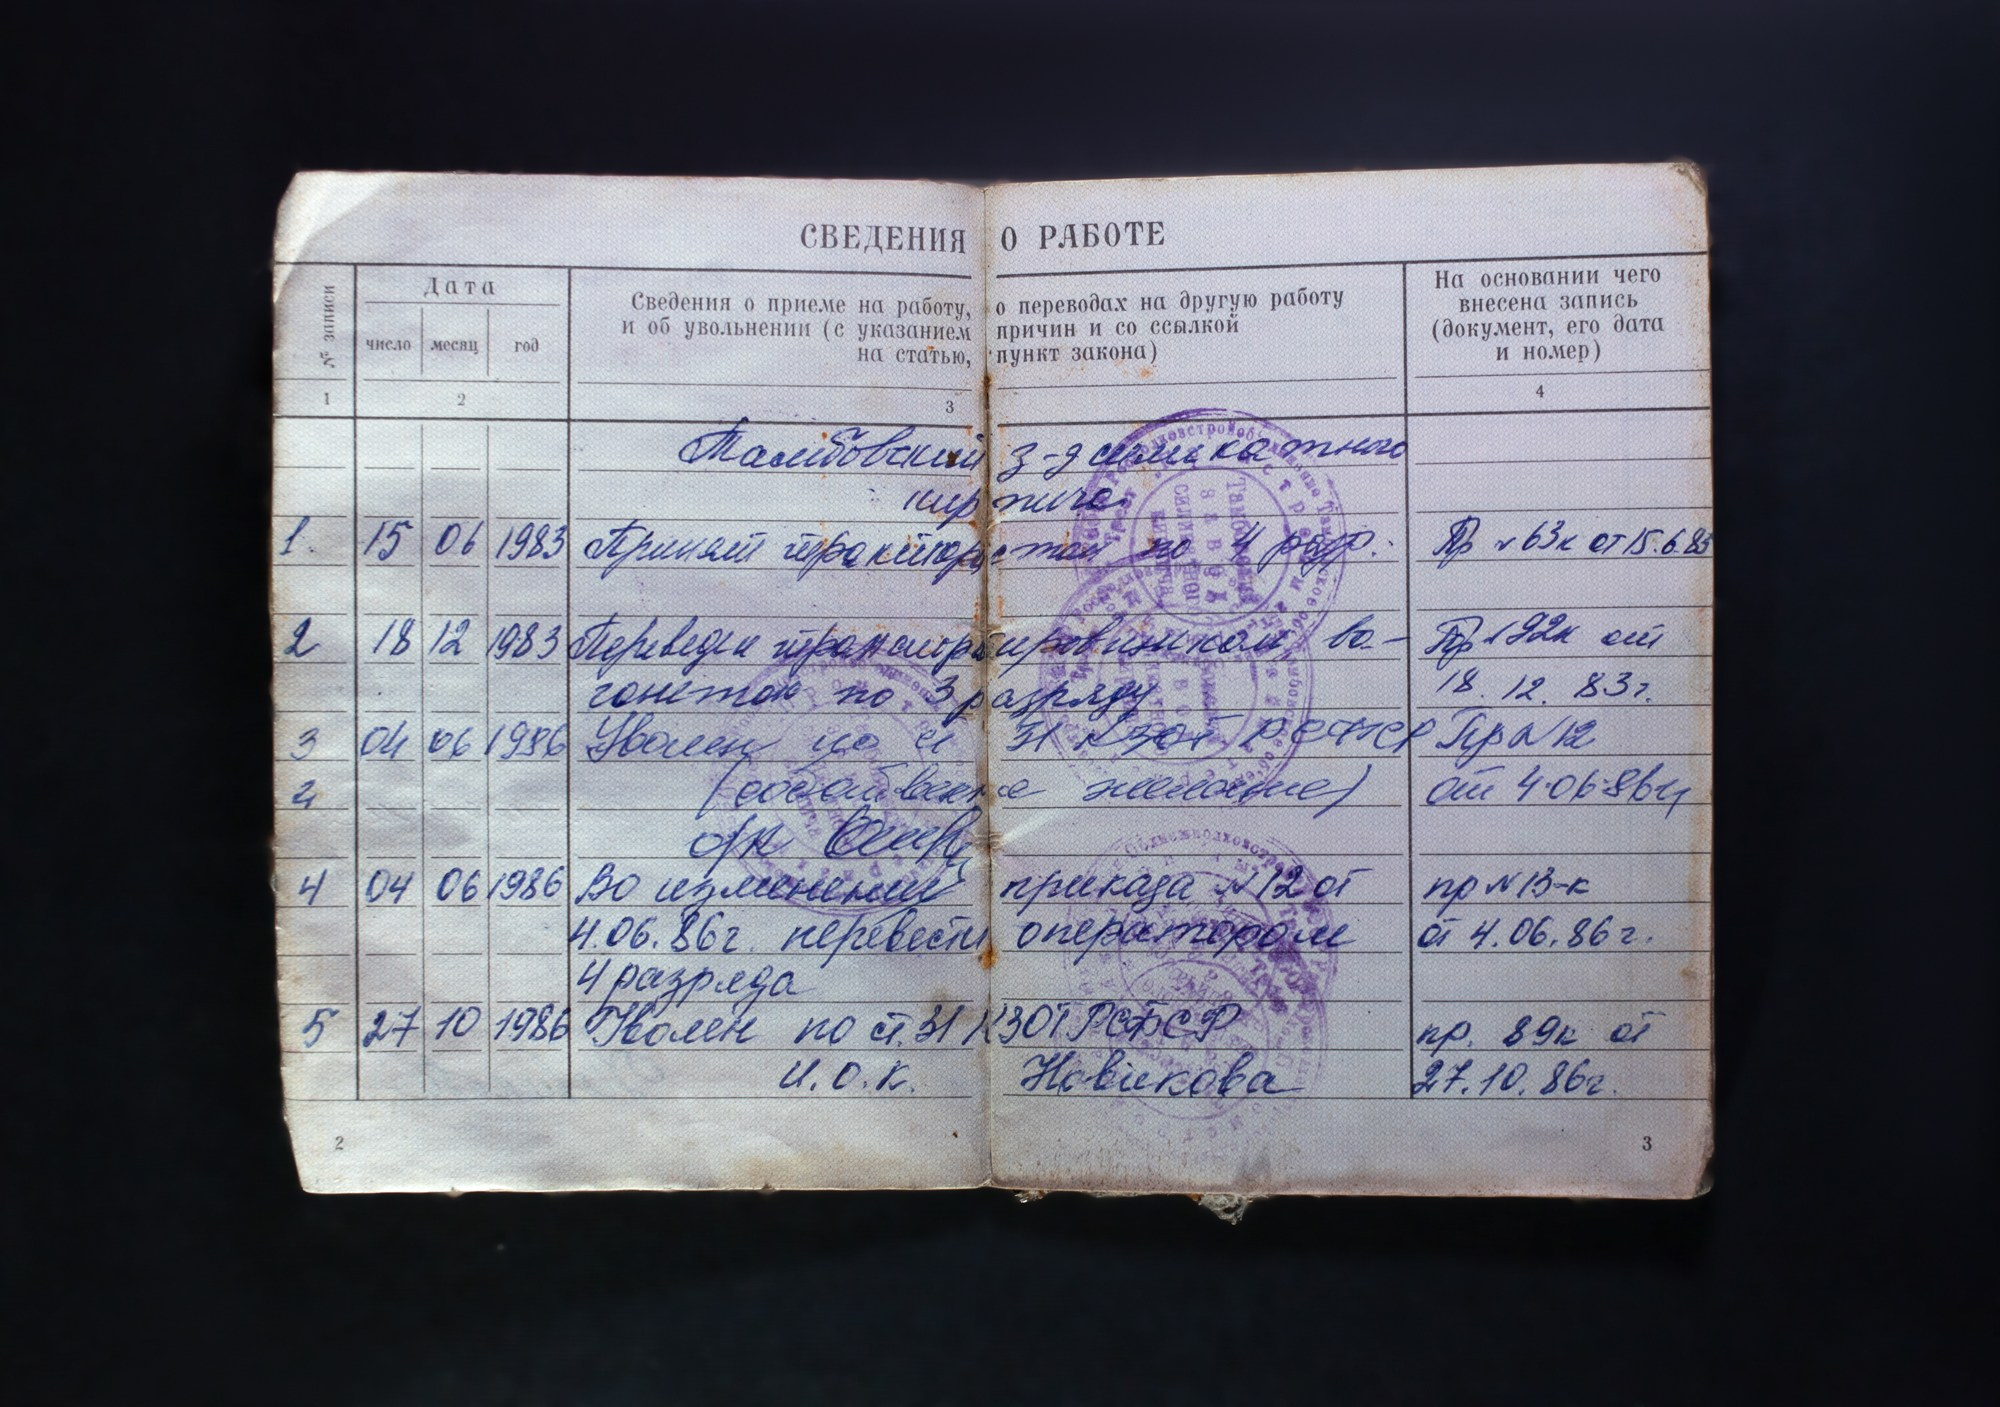 СВЕДЕНИЯ О РАБОТЕ
№ записи
Дата
число месяц год
Сведения о приеме на работу, о переводах на другую работу
и об увольнении (с указанием причин и со ссылкой
на статью, пункт закона)
На основании чего
внесена запись
(документ, его дата
и номер)
1 2 3 4
Тамбовский з-д силикатного
кирпича
1. 15 06 1983 Принят трактористом по 4 разр. Пр №63к от 15.6.83
2 18 12 1983 Переведен транспортировщиком ва- Пр 192к от
гонеток по 3 разряду 18. 12. 83г.
3 04 06 1986 Уволен по ст 31 КЗОТ РСФСР Пр №12
(собственное желание) от 4.06.86г
о/к
4 04 06 1986 Во изменении приказа №12 от пр №13-к
4.06.86г. перевести оператором от 4.06.86г.
4 разряда
5 27 10 1986 Уволен по ст. 31 КЗОТ РСФСР пр. 89к от
И.О.К. Новикова 27.10.86г.
2 3